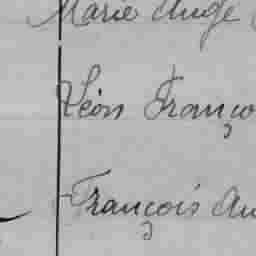 Marie Ange
Léon Franço
François Au